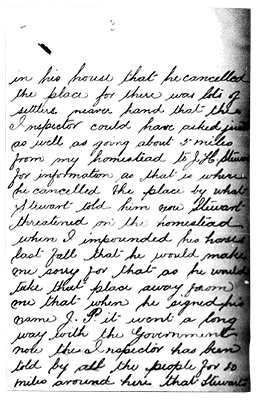 in his house that he cancelled
the place for there was lots of
settlers nearer hand that the
Inspector could have asked just
as well as going about 5 miles
from my homestead to J. H. Stewart
for information as that is where
he cancelled the place by what
Stewart told him now Stewart
threatened on the homestead
when I impounded his horses
last fall that he would make
me sorry for that as he would
take that place away from
me that when he signed his
name J. P. it went a long
way with the Government
now this Inspector has been
told by all the people for 50
miles around here that Stewart